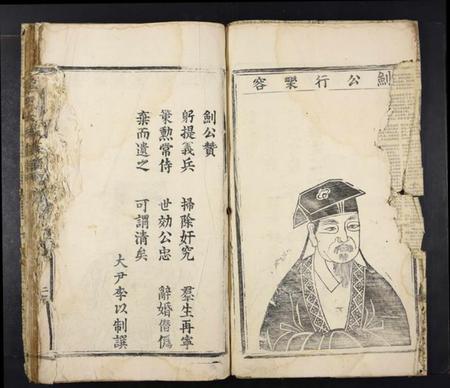 釗公行樂容
釗公贊
躬提義兵 掃除奸究 羣生再寧
策勲常侍 世効公忠 辭婚僭僞
棄而遺之 可謂清矣
大尹李以制譔
二